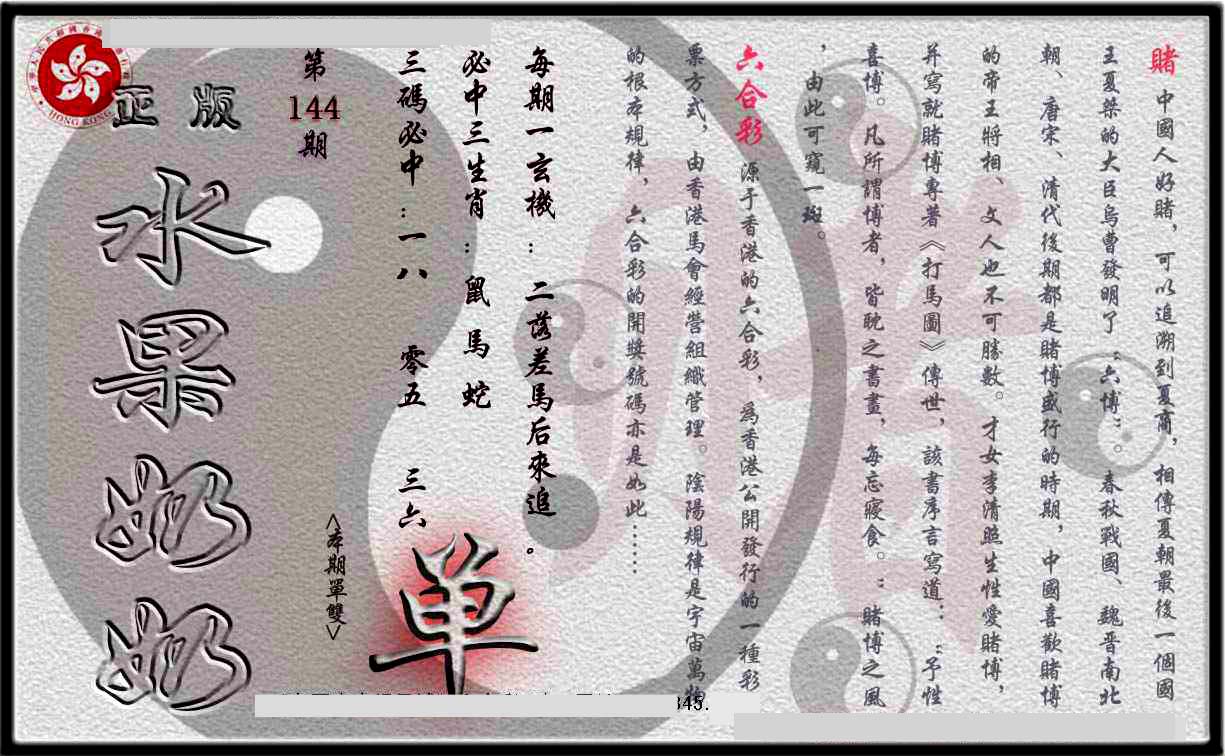 賭 中國人好賭，可以追溯到夏商，相傳夏朝最後一個國
王夏桀的大臣烏曹發明了“六博”。春秋戰國、魏晋南北
朝、唐宋、清代後期都是賭博盛行的時期，中國喜歡賭博
的帝王將相、文人也不可勝數。才女李清照生性愛賭博，
并寫就賭博專著《打馬圖》傳世，該書序言寫道：“予性
喜博。凡所謂博者，皆耽之書畫，每忘寢食。”賭博之風
，由此可窺一斑。
六合彩 源于香港的六合彩，為香港公開發行的一種彩
票方式，由香港馬會經營組織管理。陰陽規律是宇宙萬物
的根本規律，六合彩的開獎號碼亦是如此……
每期一玄機：二落差馬后來追。
必中三生肖：鼠 馬 蛇
三碼必中：一八 零五 三六
第144期
<本期單雙>
单
正版
水果奶奶
HONG KONG
345.